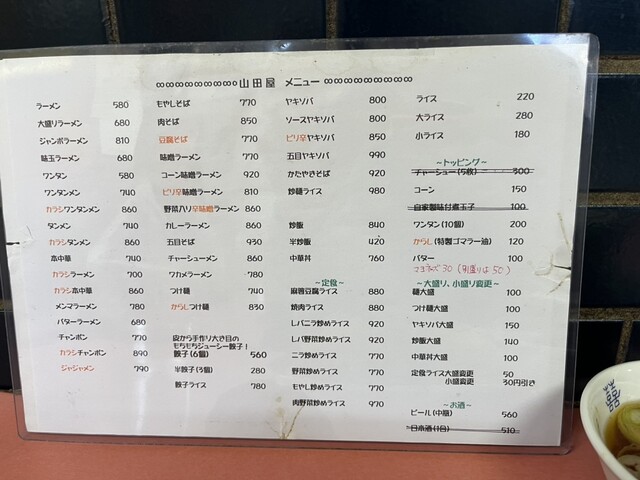 ∞∞∞∞∞∞∞∞∞ 山田屋 メニュー ∞∞∞∞∞∞∞∞∞
ラーメン 580
大盛りラーメン 680
ジャンボラーメン 810
味玉ラーメン 680
ワンタン 580
ワンタンメン 740
カラシワンタンメン 860
タンメン 740
カラシタンメン 860
本中華 740
カラシラーメン 700
カラシ本中華 860
メンマラーメン 780
バターラーメン 680
チャンポン 770
カラシチャンポン 890
ジャジャメン 790
もやしそば 770
肉そば 850
豆腐そば 770
味噌ラーメン 770
コーン味噌ラーメン 920
ピリ辛味噌ラーメン 810
野菜入り辛味噌ラーメン 860
カレーラーメン 860
五目そば 930
チャーシューメン 860
ワカメラーメン 780
つけ麺 740
カラシつけ麺 830
皮から手作り大き目の
もちもちジューシー餃子!
餃子(6個) 560
半餃子(3個) 280
餃子ライス 780
ヤキソバ 800
ソースヤキソバ 800
ピリ辛ヤキソバ 850
五目ヤキソバ 990
かたやきそば 920
炒麺ライス 980
炒飯 840
半炒飯 420
中華丼 760
~定食~
麻婆豆腐ライス 880
焼肉ライス 880
レバニラ炒めライス 920
レバ野菜炒めライス 920
ニラ炒めライス 770
野菜炒めライス 770
もやし炒めライス 770
肉野菜炒めライス 970
ライス 220
大ライス 280
小ライス 180
~トッピング~
チャーシュー(5枚) 300
コーン 150
自家製味付煮玉子 100
ワンタン(10個) 200
からし(特製ゴマラー油) 120
バター 760
マヨネーズ30(別盛りは50)
~大盛り、小盛り変更~
麺大盛 100
つけ麺大盛 100
ヤキソバ大盛 150
炒飯大盛 140
中華丼大盛 100
定食ライス大盛変更 50
小盛変更 30円引き
~お酒~
ビール(中瓶) 560
日本酒(1合) 510